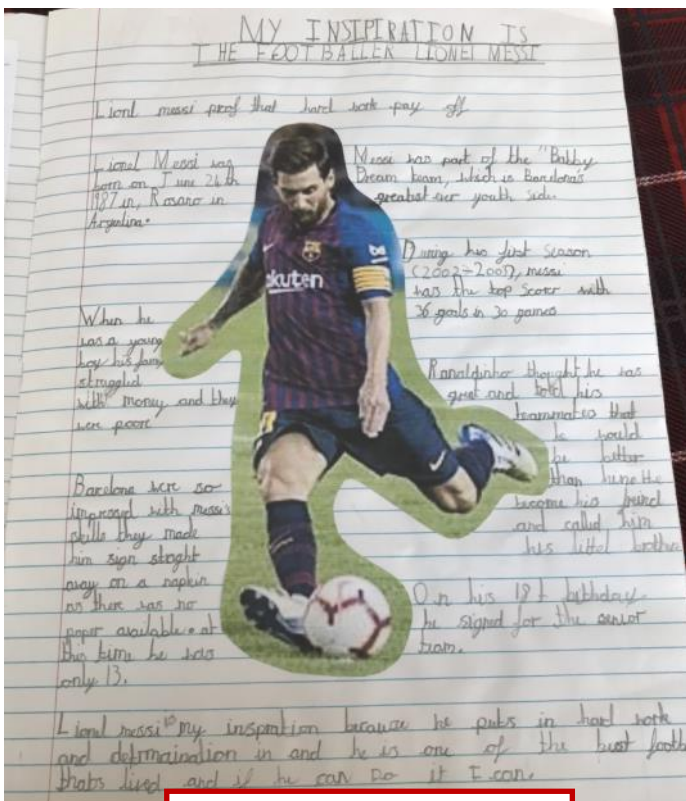 MY INSIPIRATION IS
THE FOOTBALLER LIONEL MESSI
Lionl messi prof that hard work pay off
Lionel Messi was
born on June 24th
1987 in, Rosaro in
Argentina.
When he
was a young
boy his famy
struggled
with money and they
were poore
Barcelona were so
impressd with messi's
skills they made
him sign stroght
away on a napkin
as there was no
paper available. at
this time he was
only 13.
Messi was part of the "Babby
Dream team, which is Barcelona's
greatest ever youth side.
During his first season
(2002-2003), messi
was the top scorer with
36 goals in 30 games
Ronaldinho thought he was
great and told his
teammates that
he would
be better
than hime He
become his freind
and called him
his littel brother
On his 18th bithday
he signed for the senior
team.
Lionel messi is my inspration because he puts in hard work
and detrmaination in and he is one of the best footb
thats lived and if he can Do it I can.
kuten